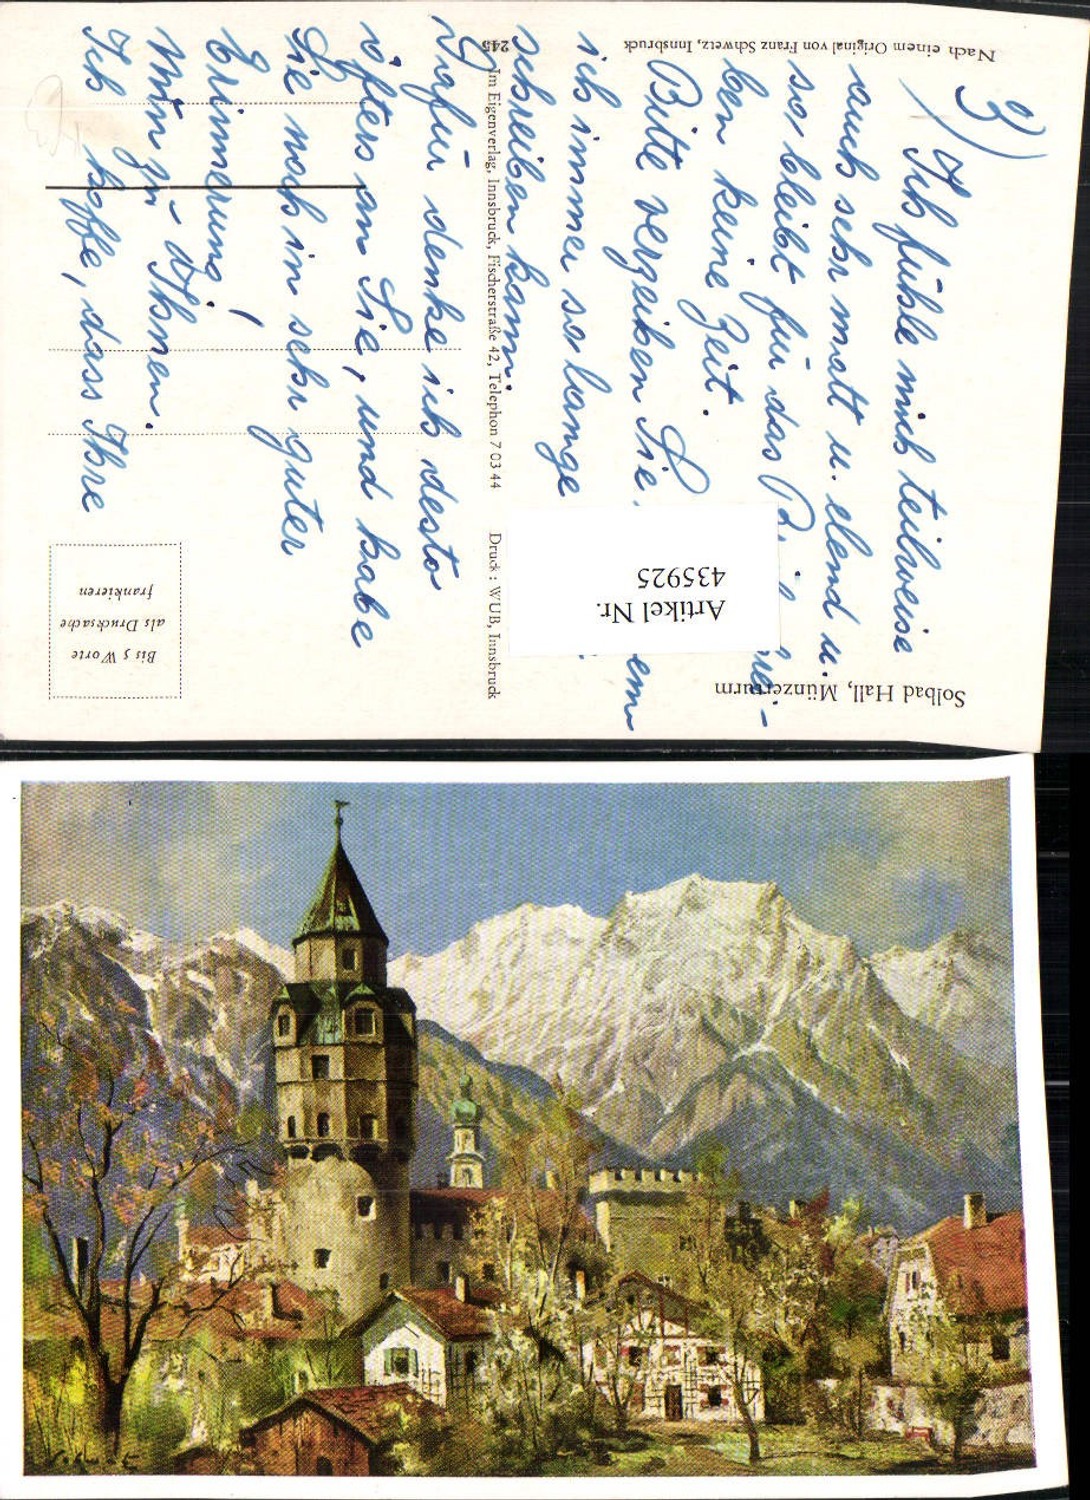 3)
Ich fühle mich teilweise
auch sehr matt u. elend u.
so bleibt für das
ben keine Zeit.
Bitte verzeihen Sie,
ich immer so lange
schreiben kann.
Dafür denke ich desto
öfters an Sie, und habe
Sie noch in sehr guter
Erinnerung,
Min zu Ihnen.
Ich hoffe, dass Ihre
Solbad Hall, Münzerturm
Nach einem Original von Franz Schwetz, Innsbruck
245
Im Eigenverlag, Innsbruck, Fischerstraße 42, Telephon 7 03 44
Druck: WUB, Innsbruck
Bis 5 Worte
als Drucksache
frankieren
Artikel Nr.
435925